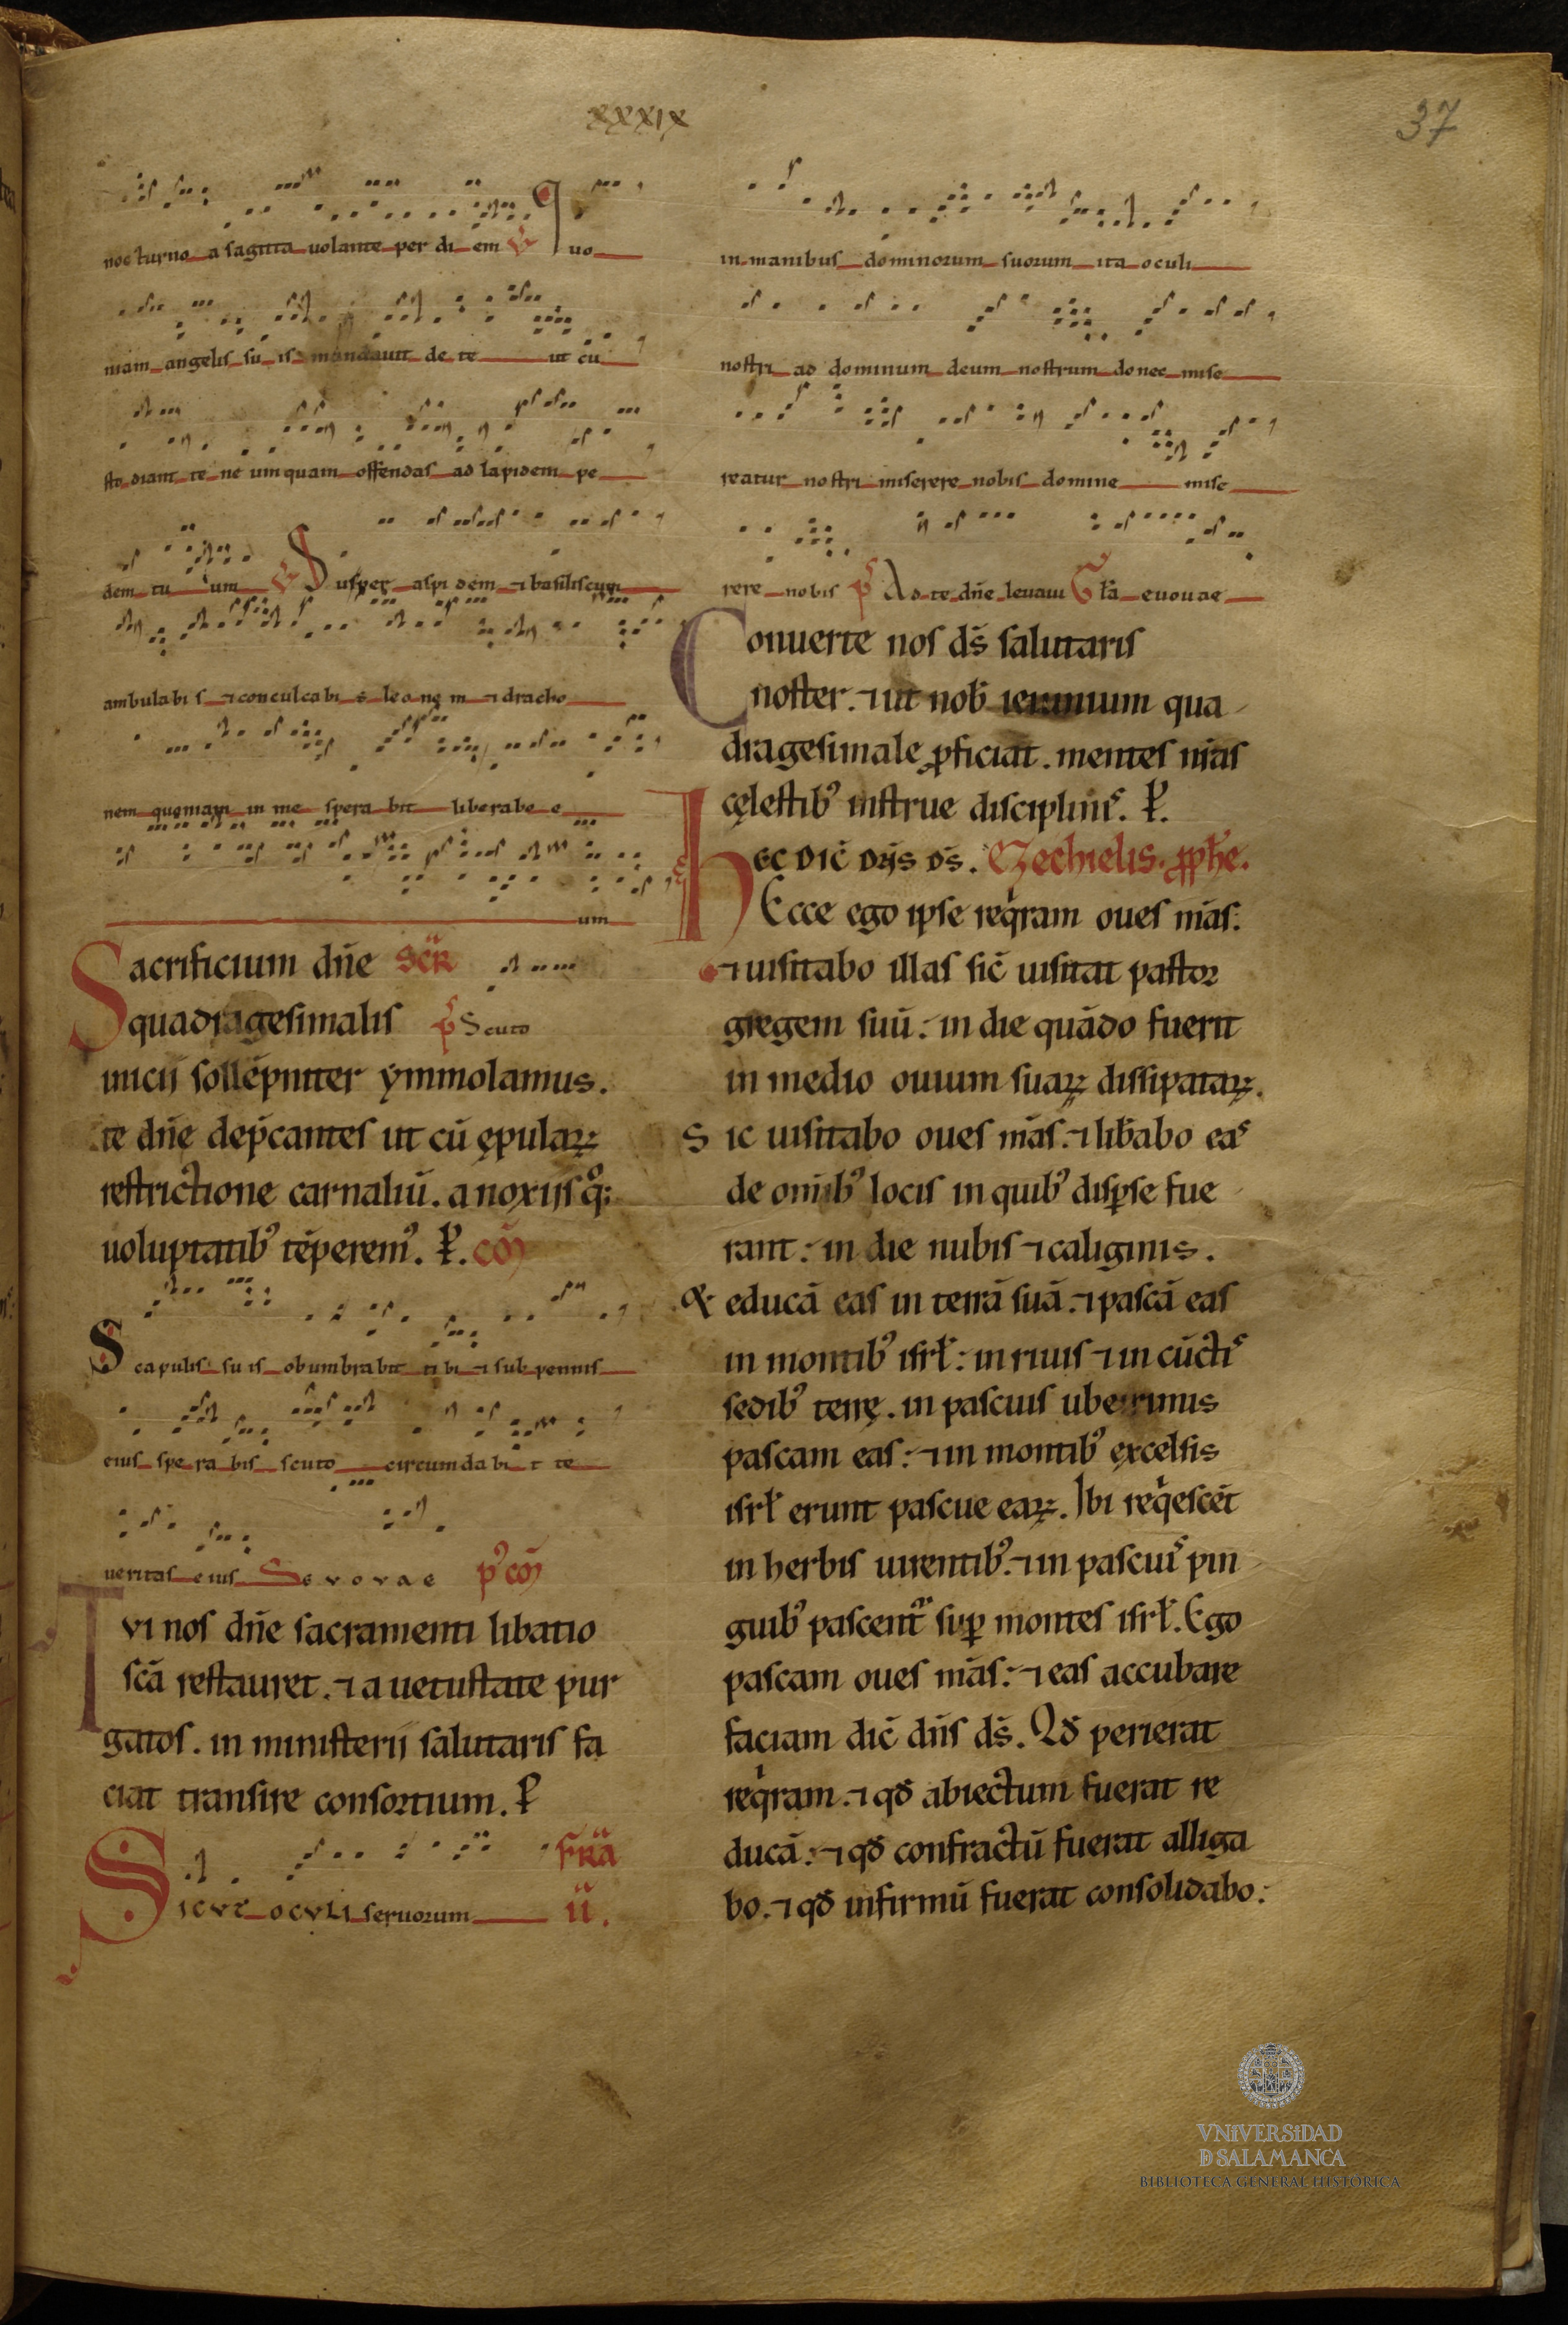 xxxix
37
nocturno a sagitta uolante per di em V Quo
niam angelis su is mandauit de te ut cu
sto diant te ne umquam offendas ad lapidem pe
dem tu um V Super aspi dem ⁊ basiliscum
ambulabi s ⁊ conculcabi s leo ne m ⁊ draco
nem quoniam in me spera bit liberabo e
um
Sacrificium dn̄e SCR̄
quadragesimalis p̄s Scuto
inicii sollēpniter ymmolamus.
te dn̄e dep̄cantes ut cū ępulaꝝ
restrictione carnaliū. a noxiis q̊;
uoluptatib᾽ tēperem᾽. P̵. COM̄
Scapulis su is obumbrabit ti bi ⁊ sub pennis
eius spe ra bis scuto circumdabi t te
ueritas eius Seuouae p᾽ com̄
Tvi nos dn̄e sacramenti libatio
scā restauret. ⁊ a uetustate pur
gatos. in ministerii salutaris fa
ciat transire consortium. P̵
Sicvt ocvli seruorum FR̄A
II.
in manibus dominorum suorum ita oculi
nostri ad dominum deum nostrum donec mise
reatur nostri miserere nobis domine mise
rere nobis p̄s Ad te dn̄e leuaui Gła euouae
Conuerte nos ds̄ salutaris
noster. ⁊ ut nob̄ ieiunium qua
dragesimale ꝓficiat. mentes nr̄as
cęlestib᾽ instrue disciplinis. P̵.
Hec dic̄ dn̄s ds̄. Ezechielis. ꝓph̄e.
Ecce ego ipse req̇ram oues mās:
⁊ uisitabo illas sic̄ uisitat pastor
gregem suū: in die quādo fuerit
in medio ouium suaꝝ dissipataꝝ.
Sic uisitabo oues mās. ⁊ lib̄abo eas
de omīb᾽ locis in quib᾽ disꝑse fue
rant: in die nubis ⁊ caliginis.
& educā eas in terrā suā. ⁊ pascā eas
in montib᾽ isrł: in riuis ⁊ in cūctis
sedib᾽ terrę. in pascuis uberrimis
pascam eas: ⁊ in montib᾽ excelsis
isrł erunt pascue eaꝝ. Ibi req̇escēt
in herbis uirentib᾽. ⁊ in pascuis pin
guib᾽ pascent᷑ suꝑ montes isrł. Ego
pascam oues mās: ⁊ eas accubare
faciam dic̄ dn̄s ds̄. Qđ perierat
req̇ram. ⁊ qđ abiectum fuerat re
ducā: ⁊ qđ confractū fuerat alliga
bo. ⁊ qđ infirmū fuerat consolidabo:
VNIVERSIDAD
D SALAMANCA
BIBLIOTECA GENERAL HISTÓRICA